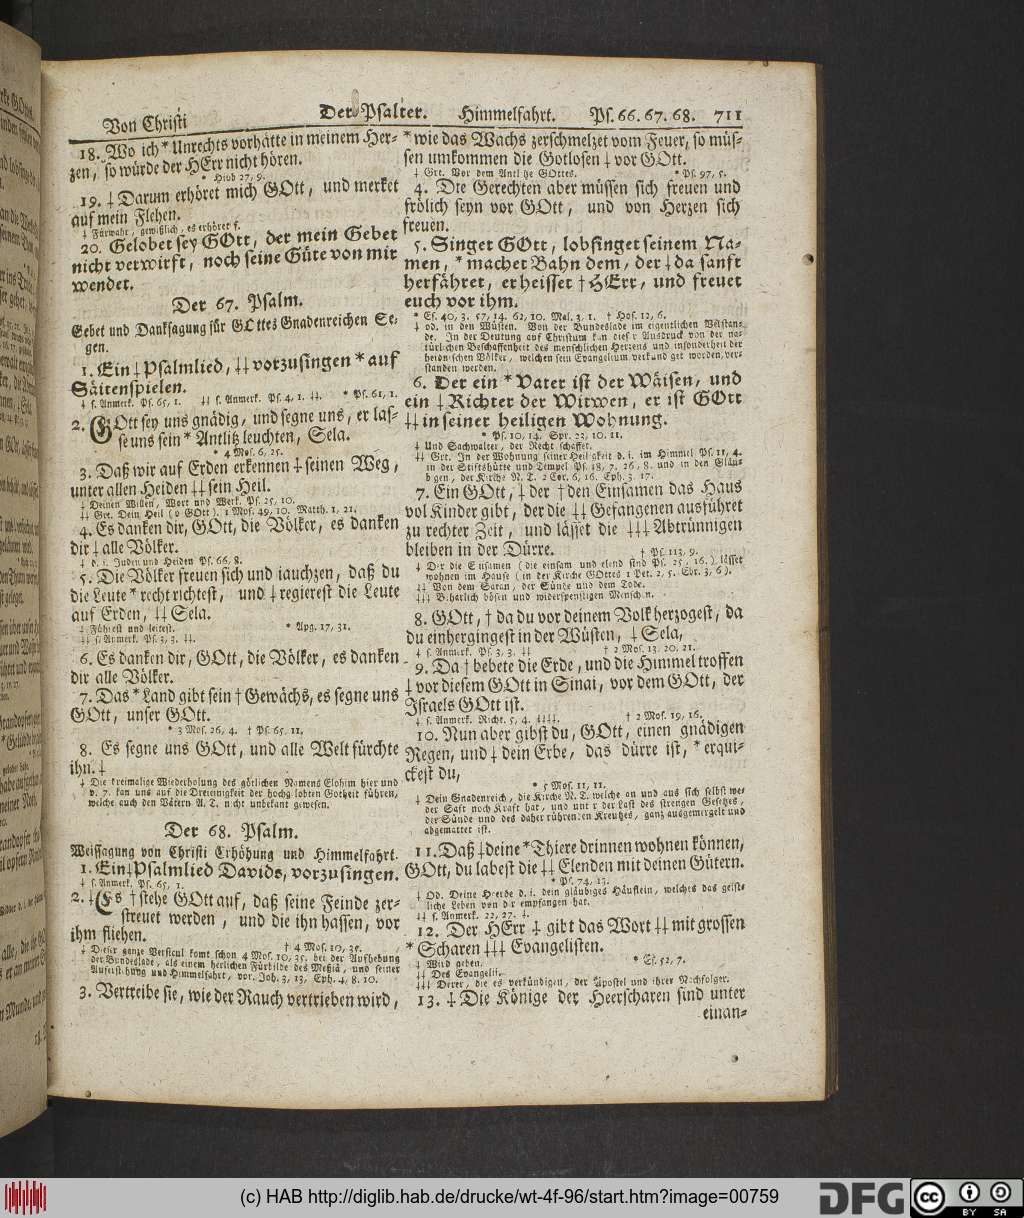 Von Christi Der Psalter. Himmelfahrt. Ps. 66. 67. 68. 711
18. Wo ich * Unrechts vorhätte in meinem Her-
zen, so würde der HErr nicht hören.
* Hiob 27, 9.
19. ‡ Darum erhöret mich GOtt, und merket
auf mein Flehen.
‡ Fürwahr, gewißlich, es erhöret ꝛc.
20. Gelobet sey GOtt, der mein Gebet
nicht verwirft, noch seine Güte von mir
wendet.
Der 67. Psalm.
Gebet und Danksagung für GOttes Gnadenreichen Se-
gen.
1. Ein ‡ Psalmlied, ‡‡ vorzusingen * auf
Säitenspielen.
‡ s. Anmerk. Ps. 65, 1. ‡‡ s. Anmerk. Ps. 4, 1. ‡‡. * Ps. 61, 1.
2. GOtt sey uns gnädig, und segne uns, er las-
se uns sein * Antlitz leuchten, Sela.
* 4 Mos. 6, 25.
3. Daß wir auf Erden erkennen ‡ seinen Weg,
unter allen Heiden ‡‡ sein Heil.
‡ Deinen Willen, Wort und Werk. Ps. 25, 10.
‡‡ Grt. Dein Heil (o GOtt). 1 Mos. 49, 10. Matth. 1, 21.
4. Es danken dir, GOtt, die Völker, es danken
dir ‡ alle Völker.
‡ d. i. Juden und Heiden Ps. 66, 8.
5. Die Völker freuen sich und jauchzen, daß du
die Leute * recht richtest, und ‡ regierest die Leute
auf Erden, ‡‡ Sela.
‡ Führest und leitest. * Apg. 17, 31.
‡‡ s. Anmerk. Ps. 3, 3. ‡‡.
6. Es danken dir, GOtt, die Völker, es danken
dir alle Völker.
7. Das * Land gibt sein † Gewächs, es segne uns
GOtt, unser GOtt.
* 3 Mos. 26, 4. † Ps. 65, 11.
8. Es segne uns GOtt, und alle Welt fürchte
ihn. ‡
‡ Die dreimalige Wiederholung des götlichen Namens Elohim hier und
v. 7. kan uns auf die Dreieinigkeit der hochgelobten Gotheit führen,
welche auch den Vätern A. T. nicht unbekant gewesen.
Der 68. Psalm.
Weissagung von Christi Erhöhung und Himmelfahrt.
1. Ein ‡ Psalmlied Davids, vorzusingen.
‡ s. Anmerk. Ps. 65, 1.
2. ‡ Es † stehe GOtt auf, daß seine Feinde zer-
streuet werden, und die ihn hassen, vor
ihm fliehen.
† 4 Mos. 10, 35.
‡ Dieser ganze Versicul komt schon 4 Mos. 10, 35. bei der Aufhebung
der Bundeslade, als einem herlichen Fürbilde des Meßiä, und seiner
Auferstehung und Himmelfahrt, vor. Joh. 3, 13. Eph. 4, 8. 10.
3. Vertreibe sie, wie der Rauch vertrieben wird,
* wie das Wachs zerschmelzet vom Feuer, so müs-
sen umkommen die Gotlosen ‡ vor GOtt.
‡ Grt. Vor dem Antlitze GOttes. * Ps. 97, 5.
4. Die Gerechten aber müssen sich freuen und
frölich seyn vor GOtt, und von Herzen sich
freuen.
5. Singet GOtt, lobsinget seinem Na-
men, * machet Bahn dem, der ‡ da sanft
herfähret, er heisset † HErr, und freuet
euch vor ihm.
* Es. 40, 3. 57, 14. 62, 10. Mal. 3, 1. † Hos. 12, 6.
‡ od. in den Wüsten. Von der Bundeslade im eigentlichen Verstan-
de. In der Deutung auf Christum kan dieser Ausdruck von der na-
türlichen Beschaffenheit des menschlichen Herzens und insonderheit der
heidnischen Völker, welchen sein Evangelium verkündiget worden, ver-
standen werden.
6. Der ein * Vater ist der Wäisen, und
ein ‡ Richter der Witwen, er ist GOtt
‡‡ in seiner heiligen Wohnung.
* Ps. 10, 14. Spr. 22, 10. 11.
‡ Und Sachwalter, der Recht schaffet.
‡‡ Grt. In der Wohnung seiner Heiligkeit d. i. im Himmel Ps. 11, 4.
in der Stiftshütte und Tempel Ps. 18, 7. 26, 8. und in den Gläu-
bigen, der Kirche N. T. 2 Cor. 6, 16. Eph. 3. 17.
7. Ein GOtt, ‡ der † den Einsamen das Haus
vol Kinder gibt, der die ‡‡ Gefangenen ausführet
zu rechter Zeit, und lässet die ‡‡‡ Abtrünnigen
bleiben in der Dürre. † Ps. 113, 9.
‡ Der die Einsamen (die einsam und elend sind Ps. 25, 16.) lässet
wohnen im Hause (in der Kirche GOttes 1 Pet. 2, 5. Ebr. 3, 6).
‡‡ Von dem Satan, der Sünde und dem Tode.
‡‡‡ Beharlich bösen und widerspenstigen Menschen.
8. GOtt, † da du vor deinem Volk herzogest, da
du einhergingest in der Wüsten, ‡ Sela,
‡ s. Anmerk. Ps. 3, 3. ‡‡ † 2 Mos. 13. 20. 21.
9. Da † bebete die Erde, und die Himmel troffen
‡ vor diesem GOtt in Sinai, vor dem GOtt, der
Israels GOtt ist.
‡ s. Anmerk. Richt. 5, 4. ‡‡‡. † 2 Mos. 19, 16.
10. Nun aber gibst du, GOtt, einen gnädigen
Regen, und ‡ dein Erbe, das dürre ist, * erqui-
ckest du,
* 5 Mos. 11, 11.
‡ Dein Gnadenreich, die Kirche N. T. welche an und aus sich selbst we-
der Saft noch Kraft hat, und unter der Last des strengen Gesetzes,
der Sünde und des daher rührenden Kreutzes, ganz ausgemergelt und
abgemattet ist.
11. Daß ‡ deine * Thiere drinnen wohnen können,
GOtt, du labest die ‡‡ Elenden mit deinen Gütern.
* Ps. 74, 19.
‡ Od. Deine Heerde d. i. dein gläubiges Häuflein, welches das geist-
liche Leben von dir empfangen hat.
‡‡ s. Anmerk. 22, 27. ‡.
12. Der HErr ‡ gibt das Wort ‡‡ mit grossen
* Scharen ‡‡‡ Evangelisten.
‡ Wird geben. * Es. 52, 7.
‡‡ Des Evangelii.
‡‡‡ Derer, die es verkündigen, der Apostel und ihrer Nachfolger.
13. ‡ Die Könige der Heerscharen sind unter
einan-
(c) HAB http://diglib.hab.de/drucke/wt-4f-96/start.htm?image=00759
DFG
cc BY SA